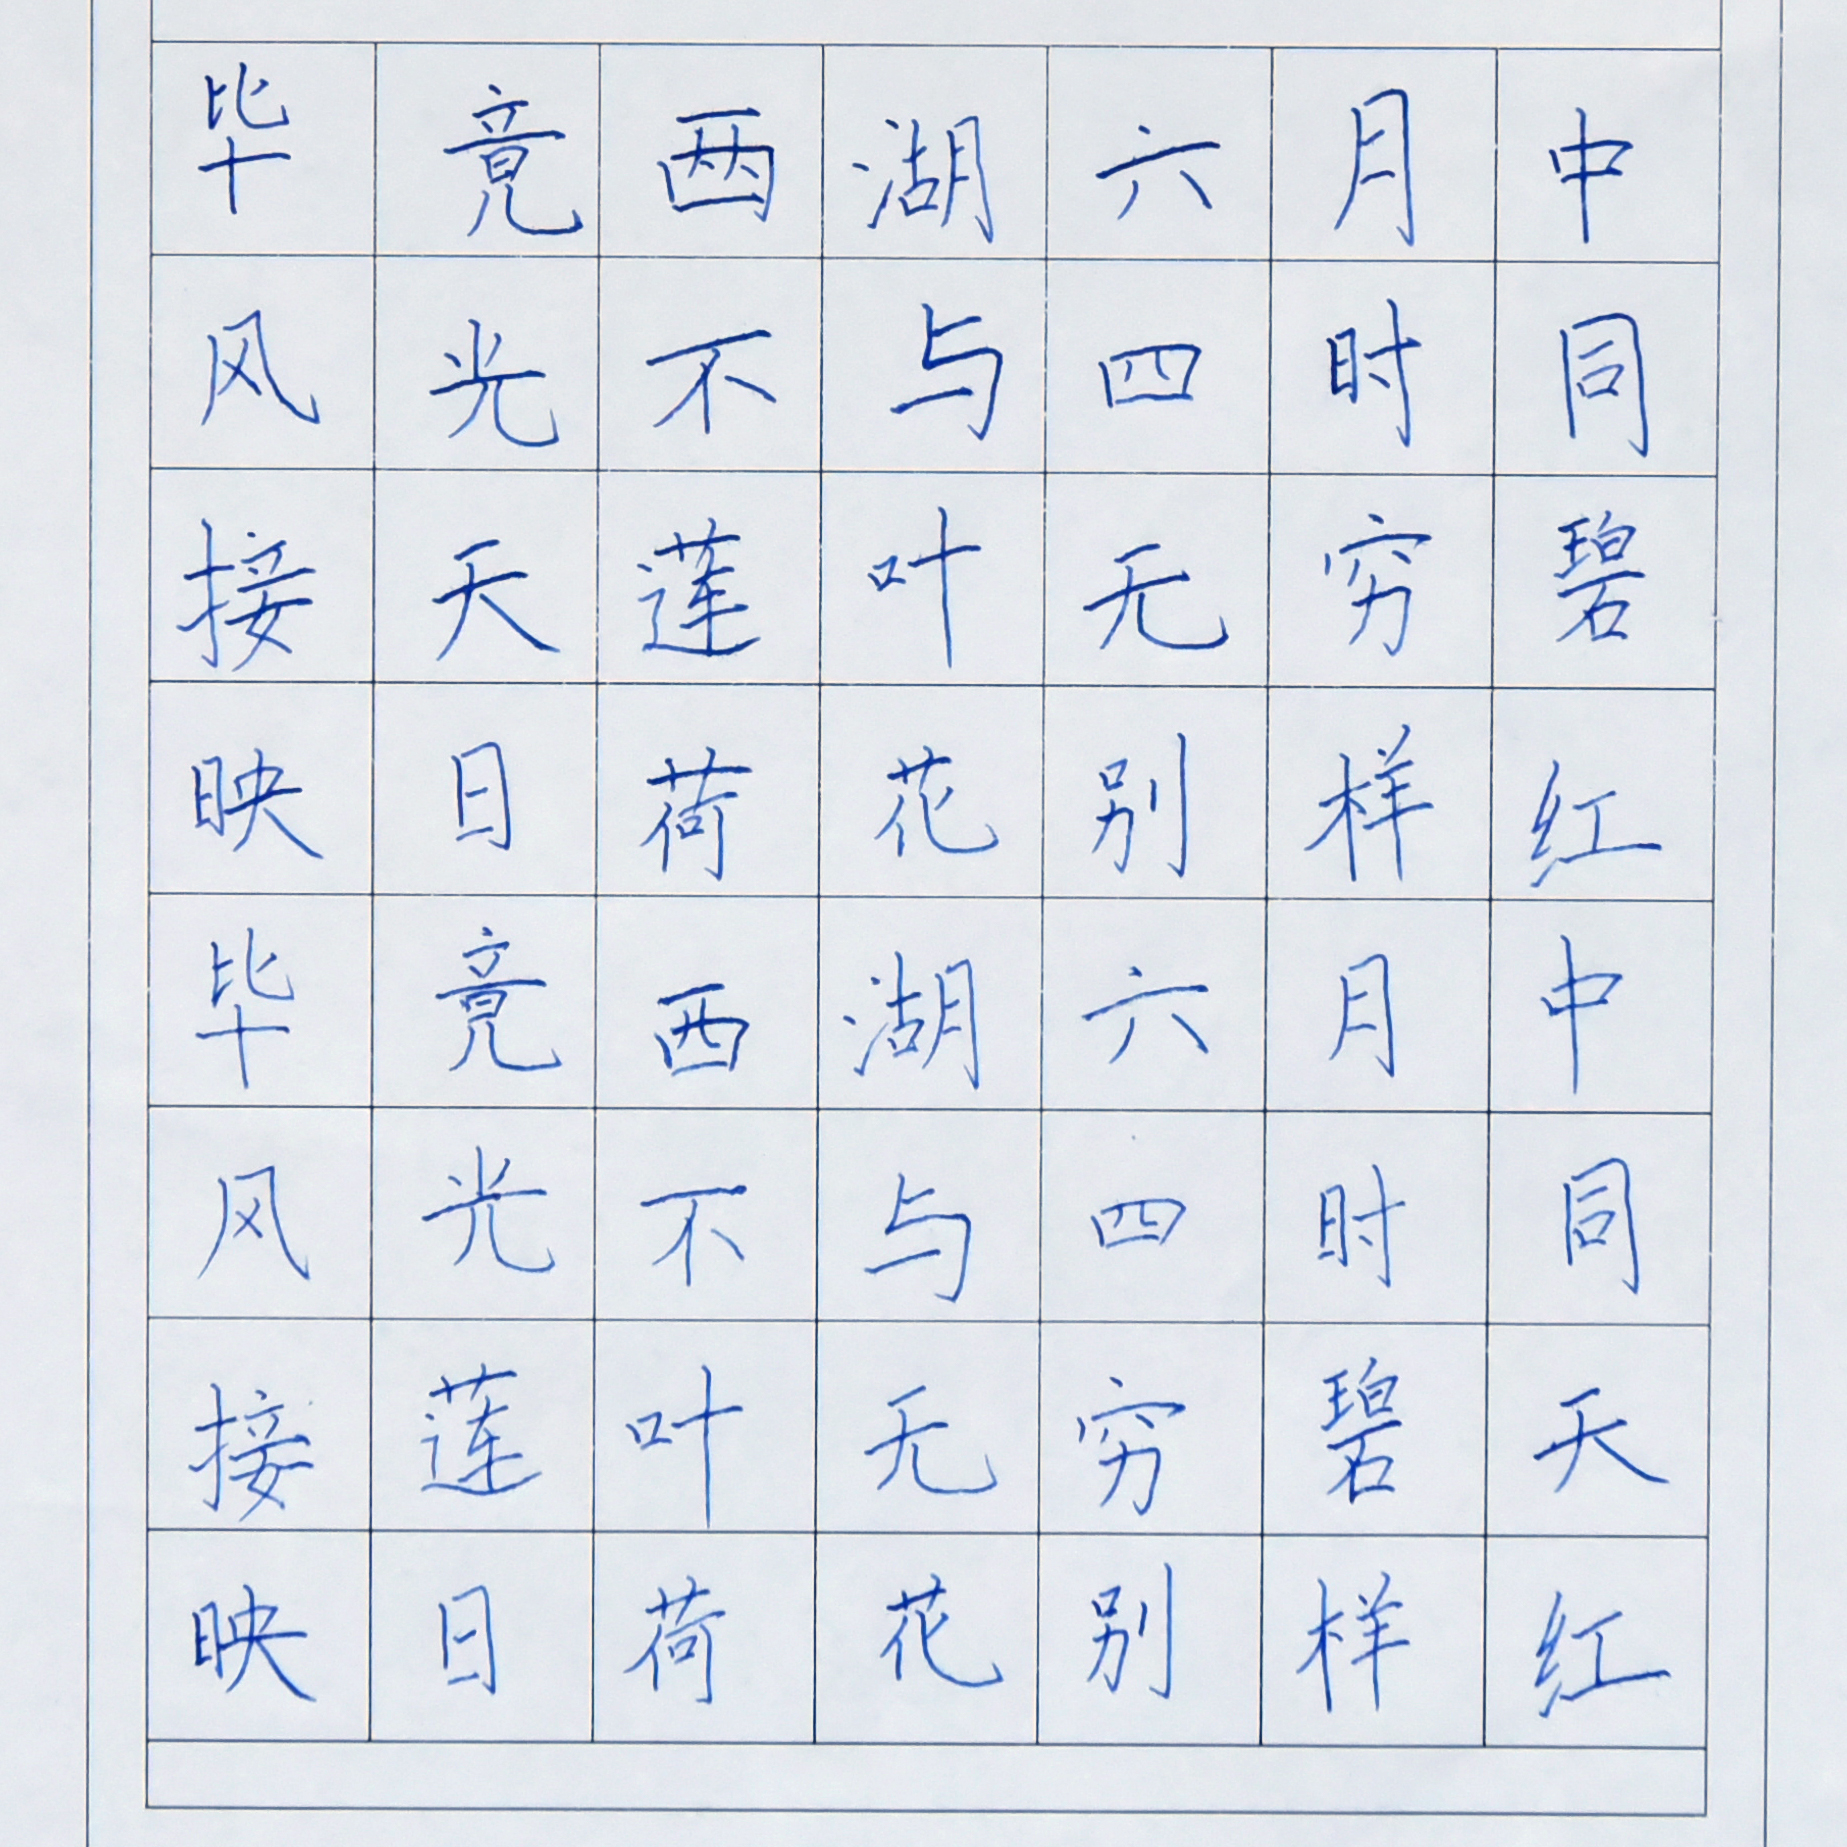 毕竟西湖六月中
风光不与四时同
接天莲叶无穷碧
映日荷花别样红
毕竟西湖六月中
风光不与四时同
接莲叶无穷碧天
映日荷花别样红